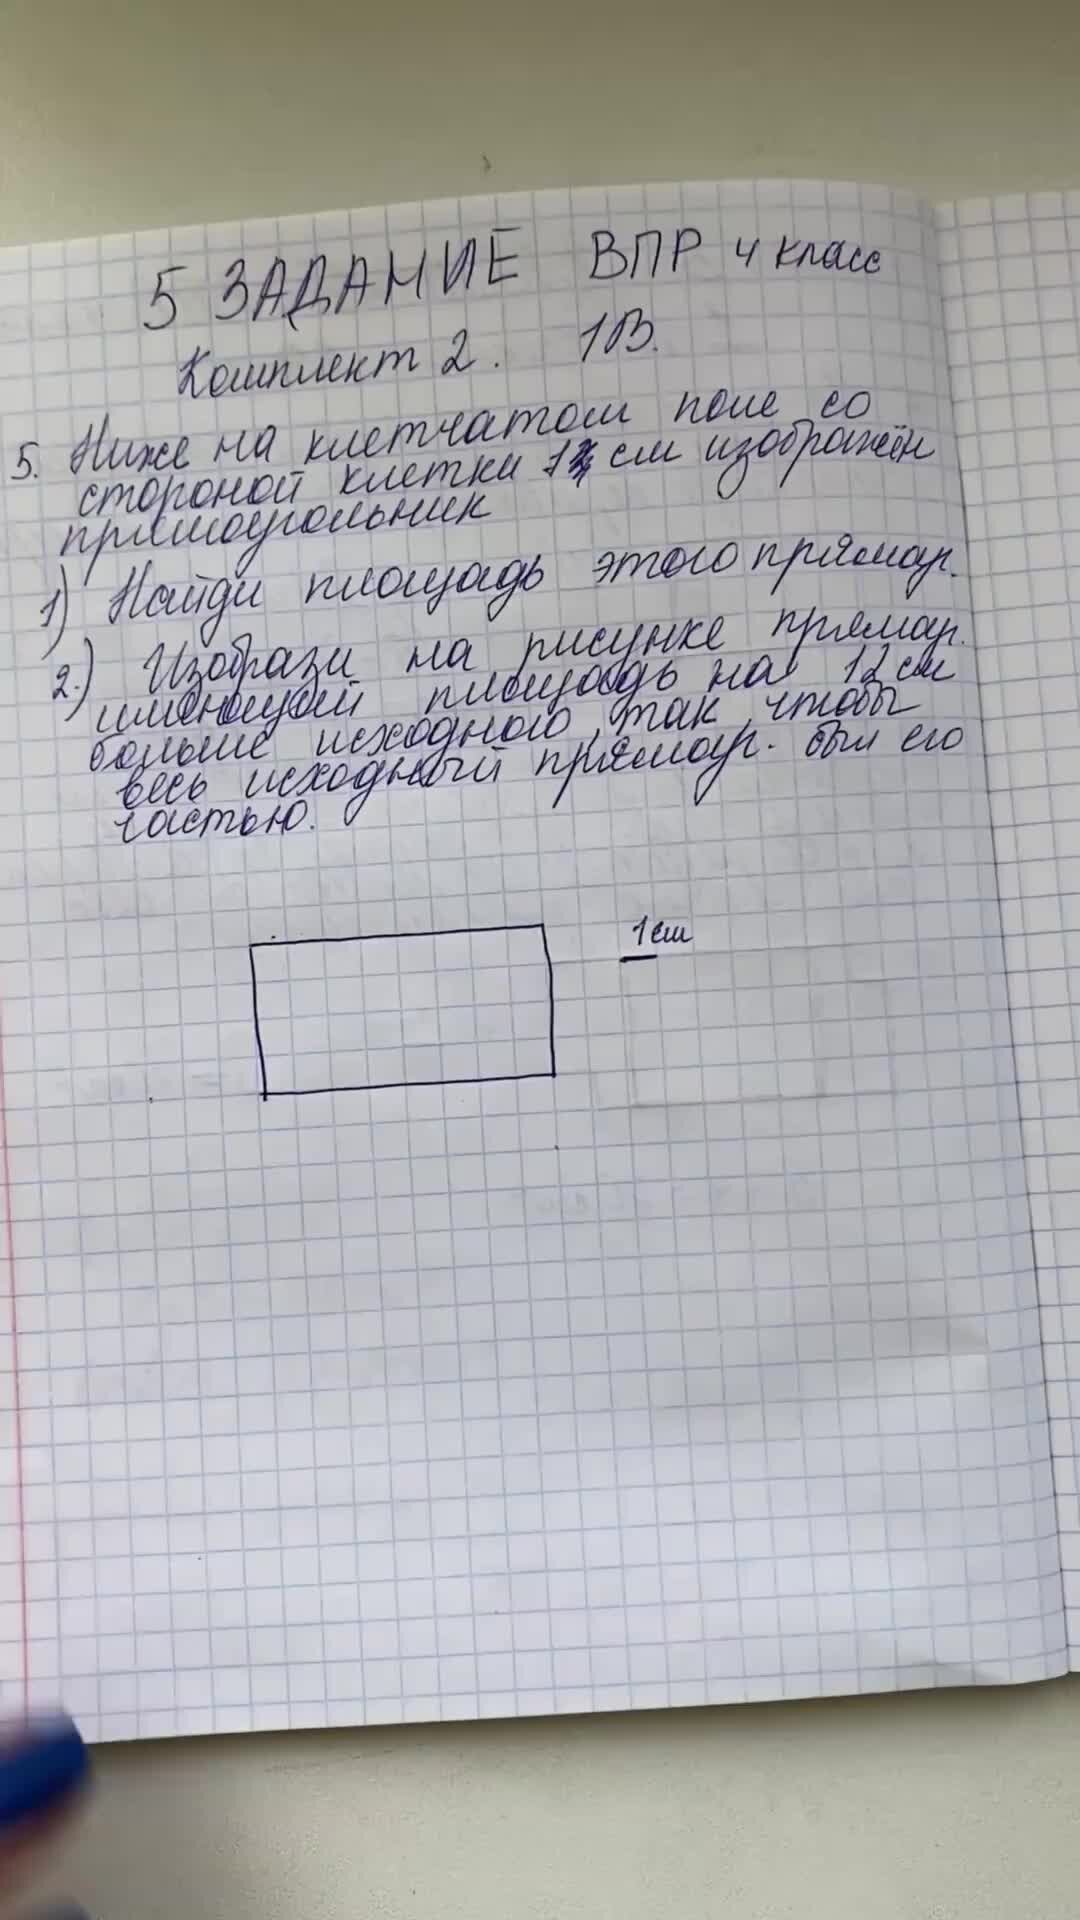 5 ЗАДАНИЕ ВПР 4 класс
Комплект 2. 1В.
5. Ниже на клетчатом поле со
стороной клетки 1 см изображён
прямоугольник
1) Найди площадь этого прямоуг.
2.) Изобрази на рисунке прямоуг.
имеющий площадь на 12 см
больше исходного, так чтобы
весь исходный прямоуг. был его
частью.
1 см